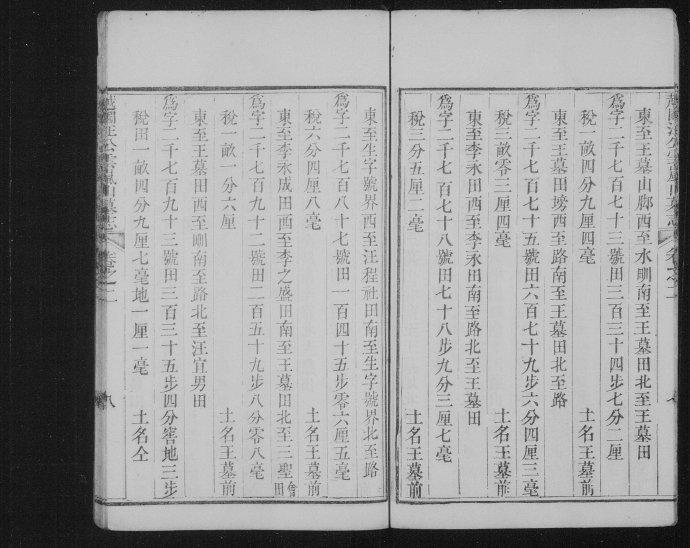 東至王墓山脚西至水圳南至王墓田北至王墓田
為字二千七百七十三號田三百三十四步七分二厘
稅一畝四分九厘四毫　土名王墓前
東至王墓田塝西至路南至王墓田北至路
為字二千七百七十五號田六百七十九步六分四厘三毫
稅三畝零三厘四毫　土名王墓前
東至李永田西至李永田南至路北至王墓田
為字二千七百七十八號田七十八步九分三厘七毫
稅三分五厘二毫　土名王墓前
東至生字號界西至汪程社田南至生字號界北至路
為字二千七百八十七號田一百四十五步零六厘五毫
稅六分四厘八毫　土名王墓前
東至李永成田西至李之盛田南至王墓田北至三聖會田
為字二千七百九十二號田二百五十九步八分零八毫
稅一畝一分六厘　土名王墓前
東至王墓田西至圳南至路北至汪宜男田
為字二千七百九十三號田三百三十五步四分窖地三步
稅田一畝四分九厘七毫地一厘一毫　土名仝
越國汪公墓志
卷之二
八